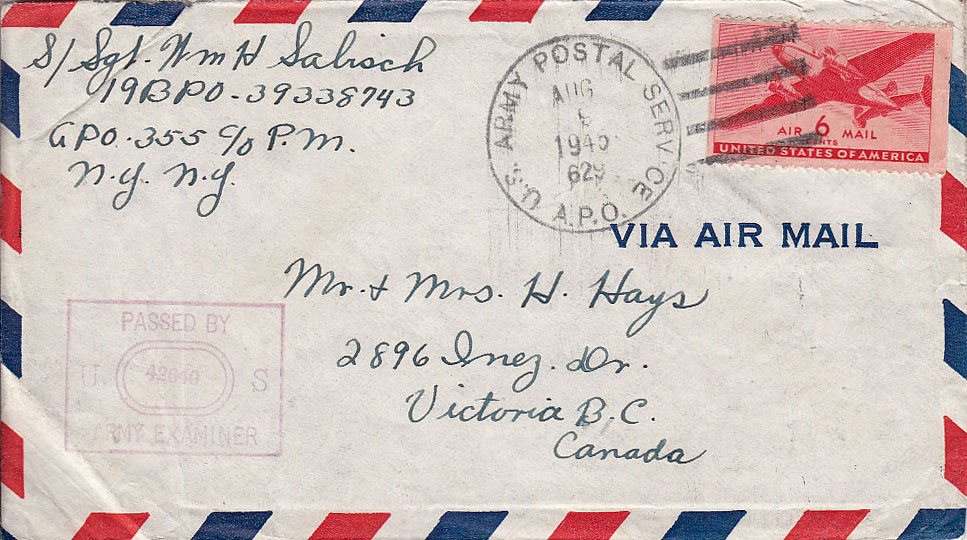 S/Sgt. Wm H Sabisch
19BPO-39338743
APO-355 C/o P.M.
N.Y. N.Y.
U.S. ARMY POSTAL SERVICE
AUG
1945
629
A.P.O.
AIR 6 MAIL
CENTS
UNITED STATES OF AMERICA
VIA AIR MAIL
Mr. & Mrs. H. Hays
2896 Inez. Dr.
Victoria B.C.
Canada
PASSED BY
U. S
ARMY EXAMINER